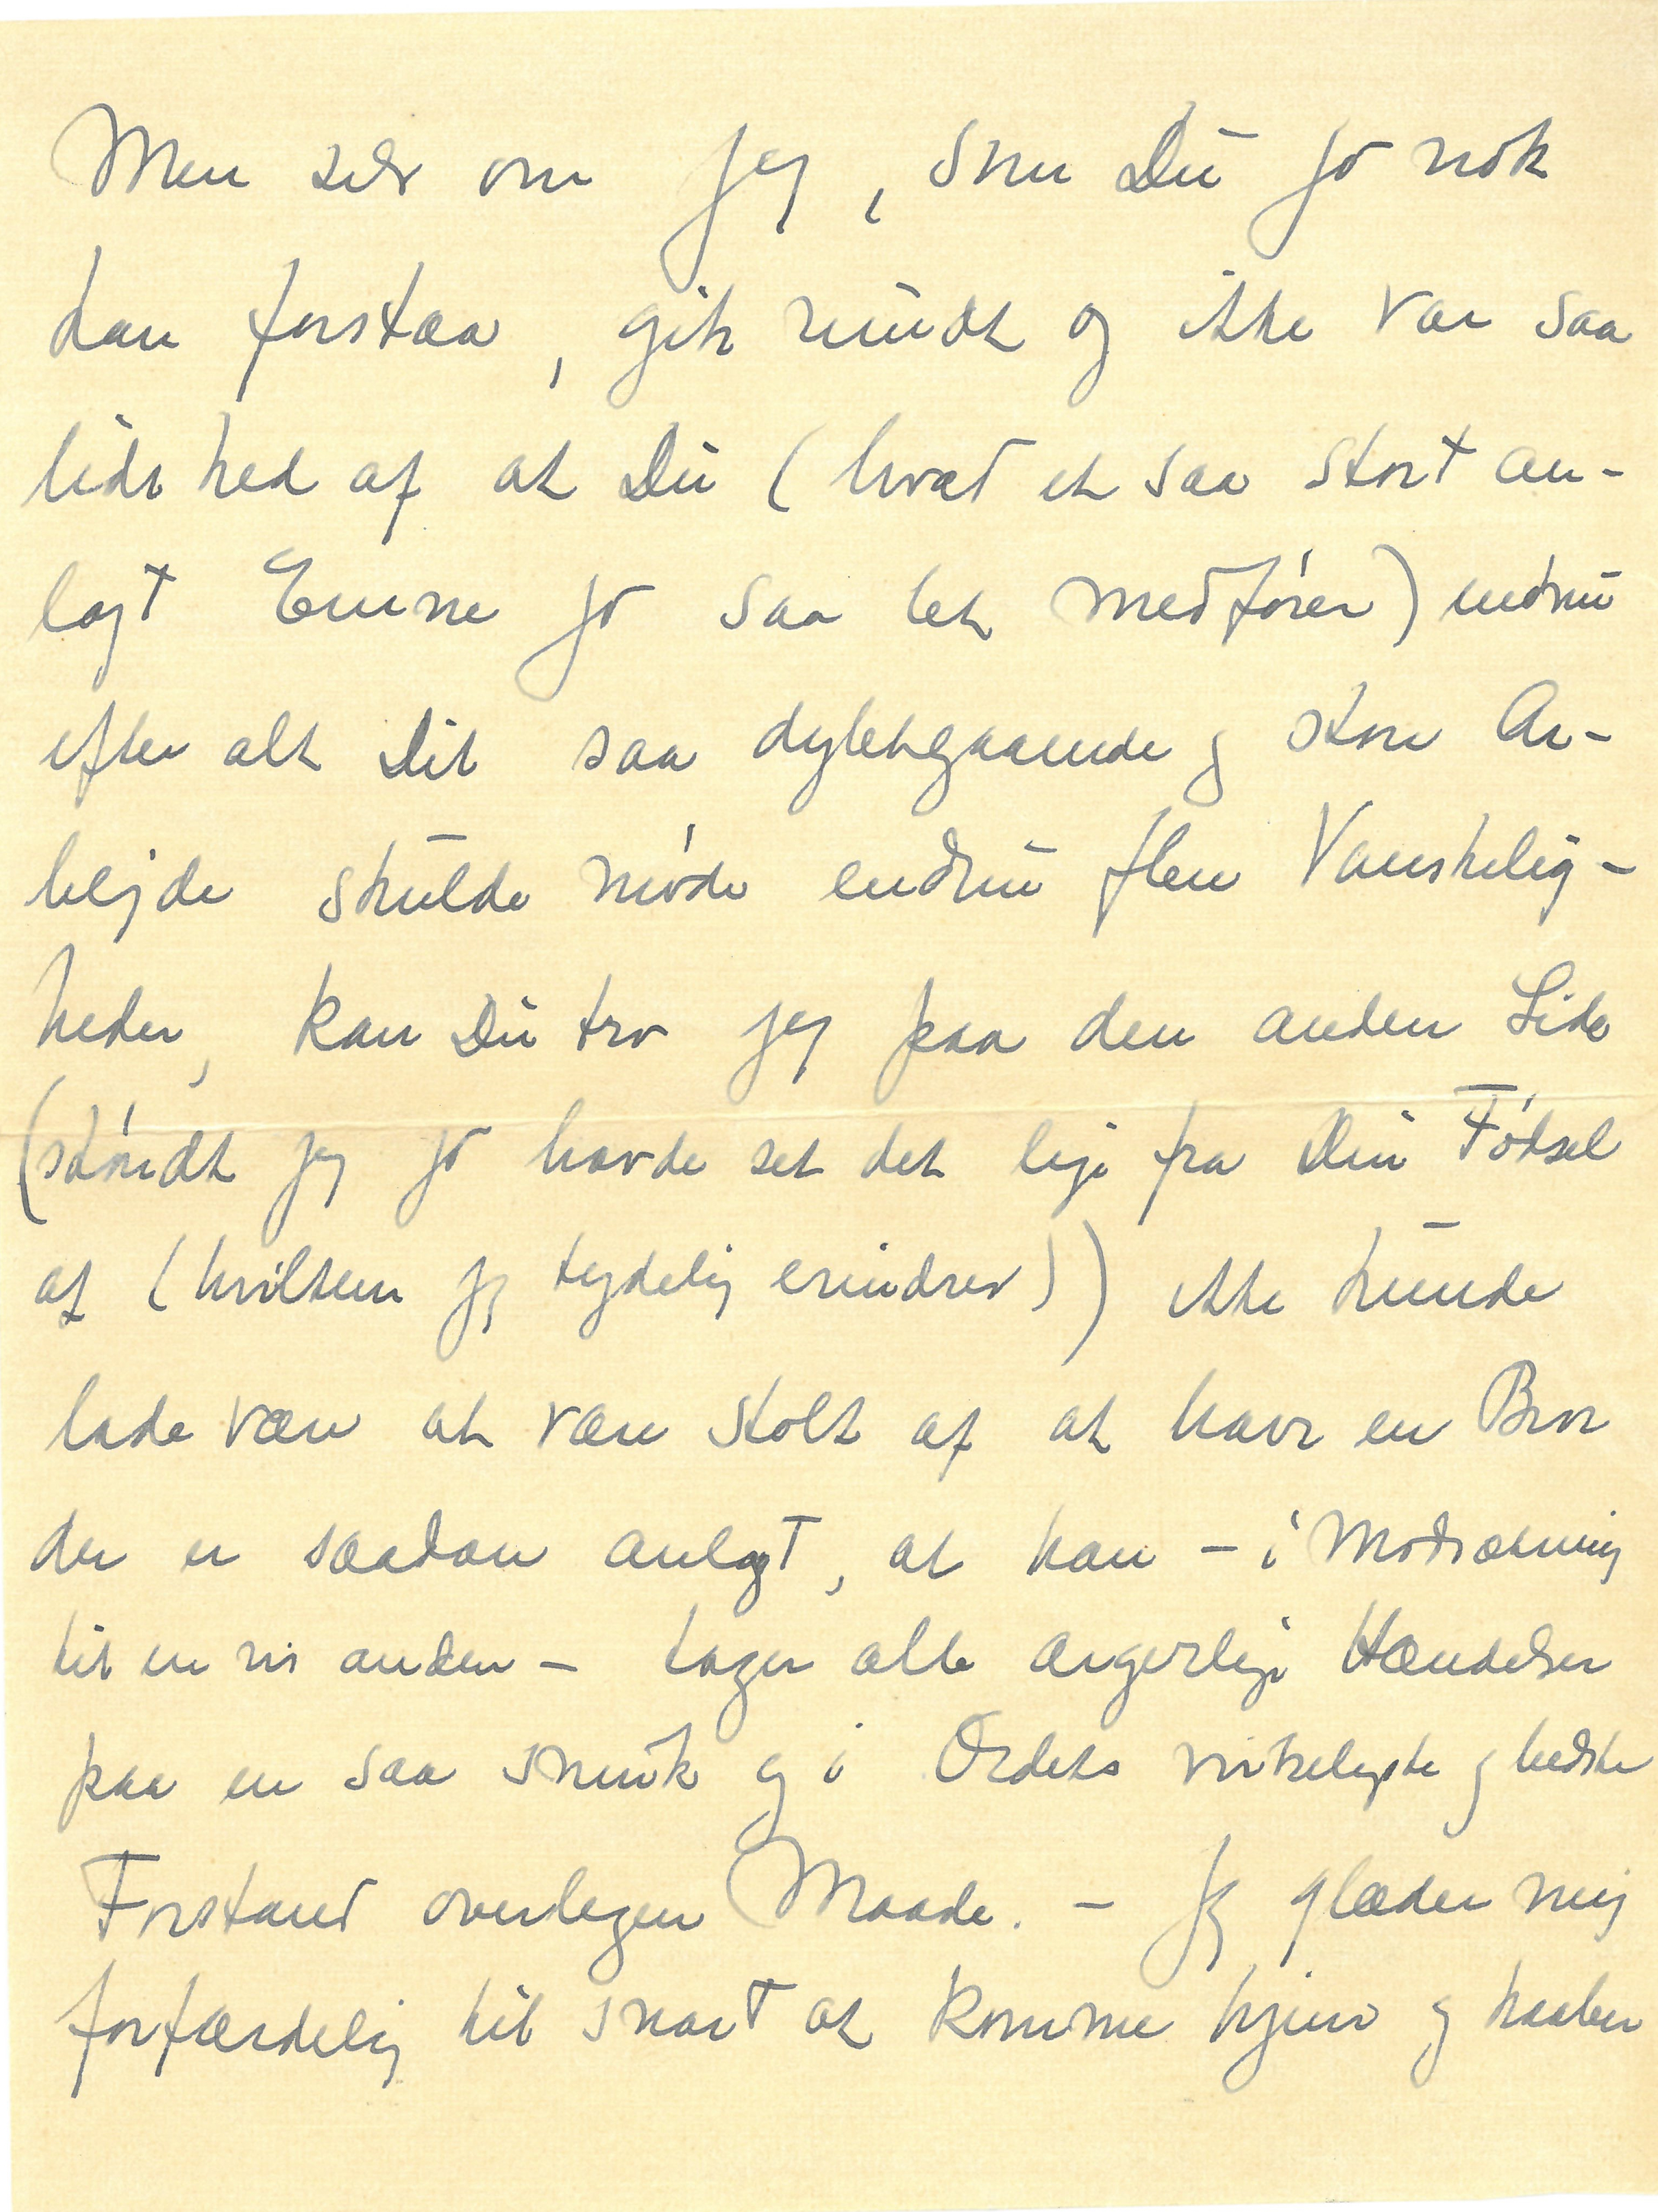 Men selv om jeg, som Du jo nok
kan forstaa, gik rundt og ikke var saa
lidt ked af at Du (hvad et saa stort an-
lagt Emne jo saa let medfører) endnu
efter alt Dit saa dybtgaaende og store Ar-
bejde skulde møde endnu flere Vanskelig-
heder, kan Du tro jeg paa den anden Side
(skøndt jeg jo havde set det lige fra Din Fødsel
af (hvilken jeg tydelig erindrer)) ikke kunde
lade være at være stolt af at have en Bror
der er saadan anlagt, at han – i Modsætning
til en vis anden – tager alle ærgerlige Hændelser
paa en saa smuk og i Ordets virkeligste og bedste
Forstand overlegen Maade. – Jeg glæder mig
forfærdelig til snart at komme hjem og haaber